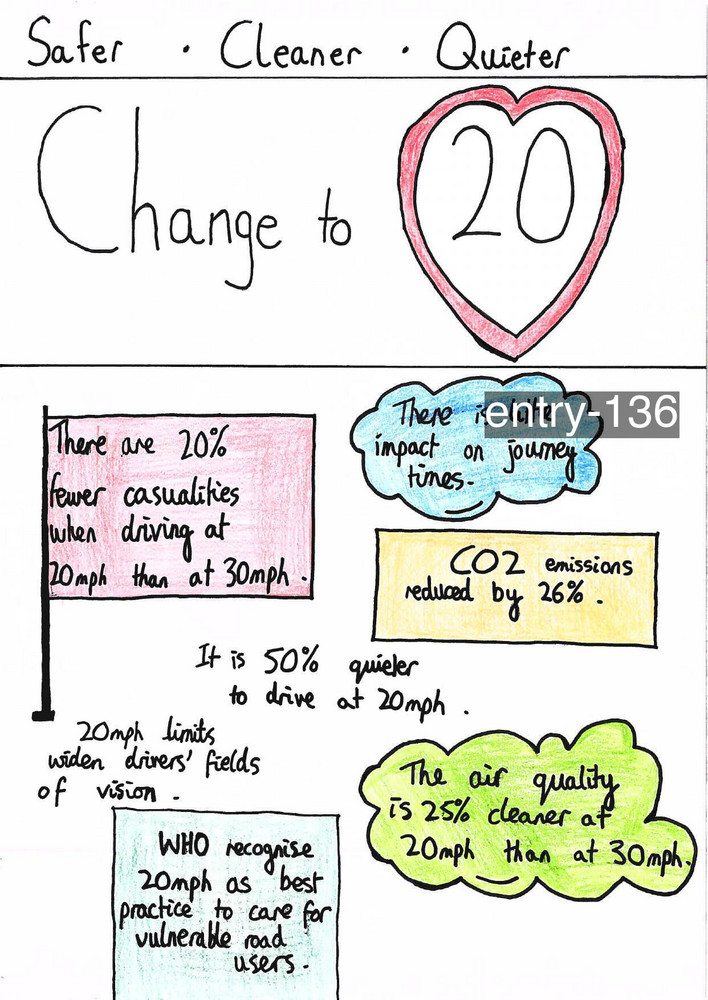 Safer · Cleaner · Quieter
Change to 20
There are 20%
fewer casualities
when driving at
20mph than at 30mph.
There is
impact on journey
times.
entry-136
CO2 emissions
reduced by 26%.
It is 50% quieter
to drive at 20mph.
20mph limits
widen drivers' fields
of vision.
The air quality
is 25% cleaner at
20mph than at 30mph.
WHO recognise
20mph as best
practice to care for
vulnerable road
users.